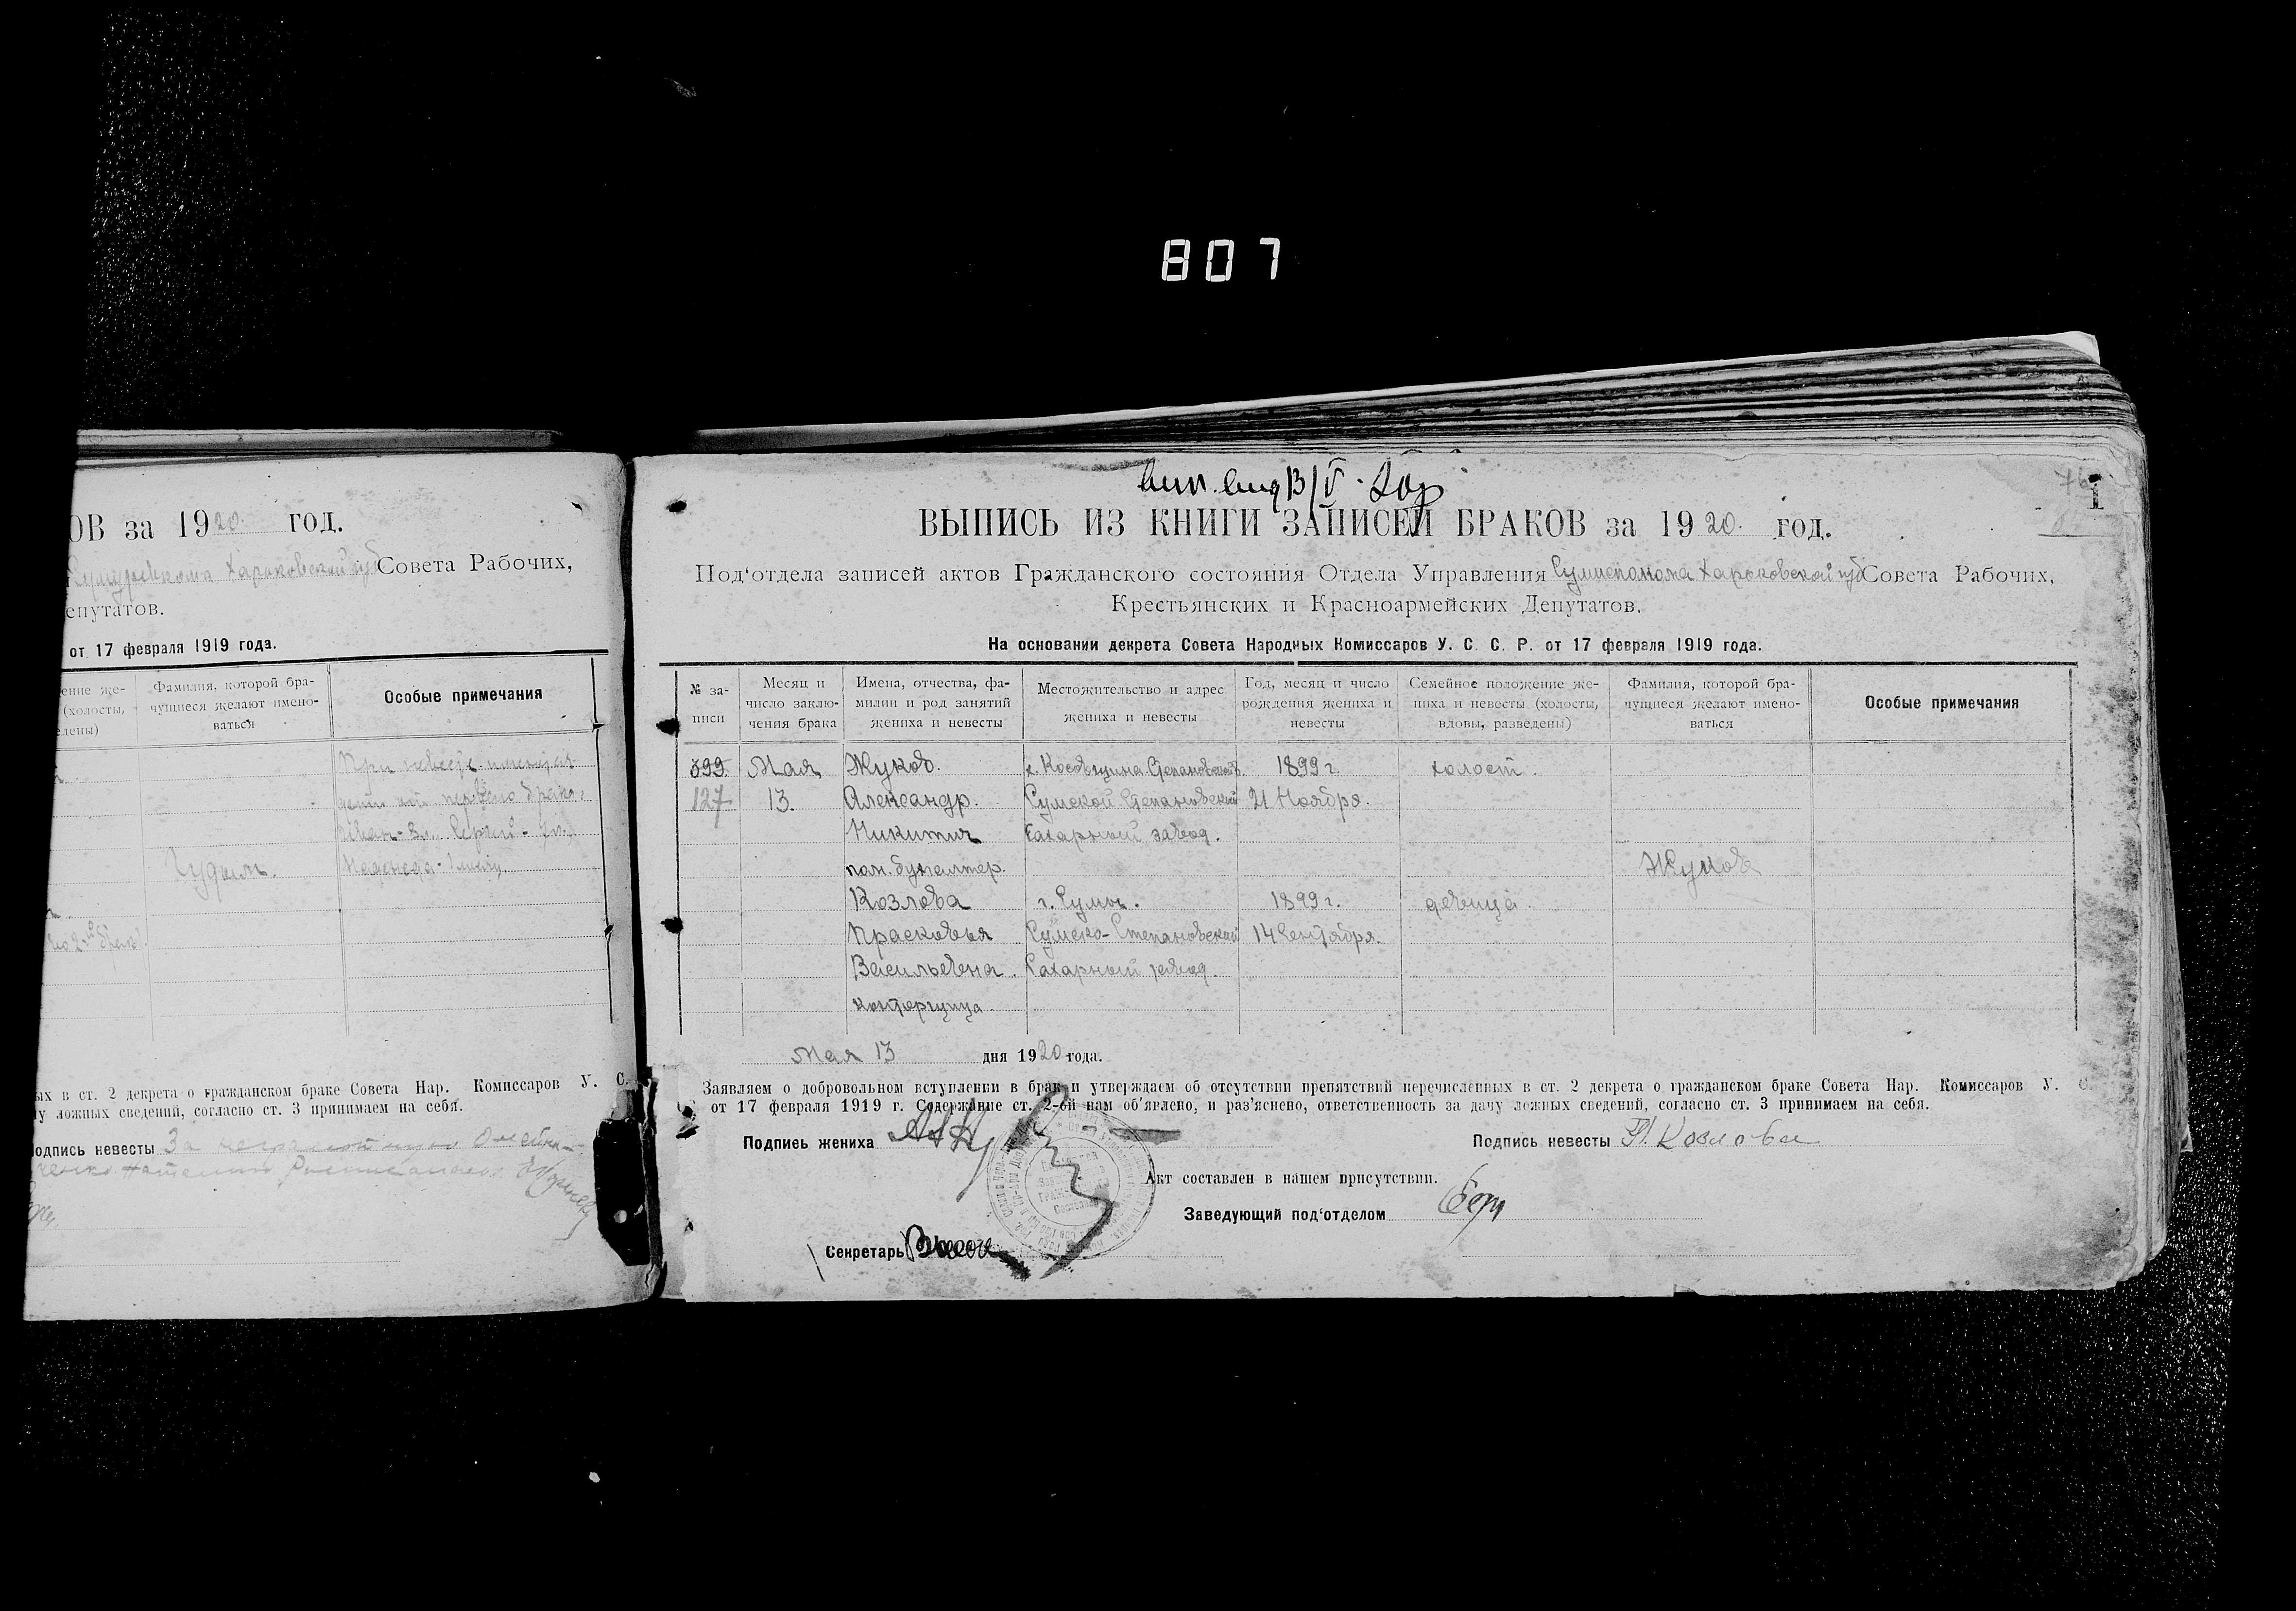 807
ОВ за 1920 год.
Харьковской губ Совета Рабочих,
епутатов.
от 17 февраля 1919 года.
ение же-
(холосты,
елены)
Фамилия, которой бра-
чущиеся желают имено-
ваться
Особые примечания
При невесте
Гудим.
Надежда - 1
ых в ст. 2 декрета о гражданском браке Совета Нар. Комиссаров У. С.
у ложных сведений, согласно ст. 3 принимаем на себя.
одпись невесты За неграмотную
13/V - 20г
1
ВЫПИСЬ ИЗ КНИГИ ЗАПИСЕЙ БРАКОВ за 1920 год.
Под‘отдела записей актов Гражданского состояния Отдела Управления Харьковской губ Совета Рабочих,
Крестьянских и Красноармейских Депутатов.
На основании декрета Совета Народных Комиссаров У. С. С. Р. от 17 февраля 1919 года.
№ за-
писи
Месяц и
число заклю-
чения брака
Имена, отчества, фа-
милии и род занятий
жениха и невесты
Местожительство и адрес
жениха и невесты
Год, месяц и число
рождения жениха и
невесты
Семейное положение же-
ниха и невесты (холосты,
вдовы, разведены)
Фамилия, которой бра-
чущиеся желают имено-
ваться
Особые примечания
399. Мая Жуков. 1899 г. холост.
127 13. Александр. Сумской Степановский 21 Ноября.
Никитич Сахарный завод.
пом. бухгалтер. Жуков
Козлова г. Сумы. 1899 г. девица.
Прасковья Сумско-Степановский 14 Сентября.
Васильевна Сахарный завод.
конторщица
Мая 13 дня 1920 года.
Заявляем о добровольном вступлении в брак и утверждаем об отсутствии препятствий перечисленных в ст. 2 декрета о гражданском браке Совета Нар. Комиссаров У. С.
от 17 февраля 1919 г. Содержание ст. 2-ой нам об'явлено, и раз'яснено, ответственность за дачу ложных сведений, согласно ст. 3 принимаем на себя.
Подпись жениха
Подпись невесты П. Козлова
Акт составлен в нашем присутствии.
Заведующий под‘отделом
Секретарь